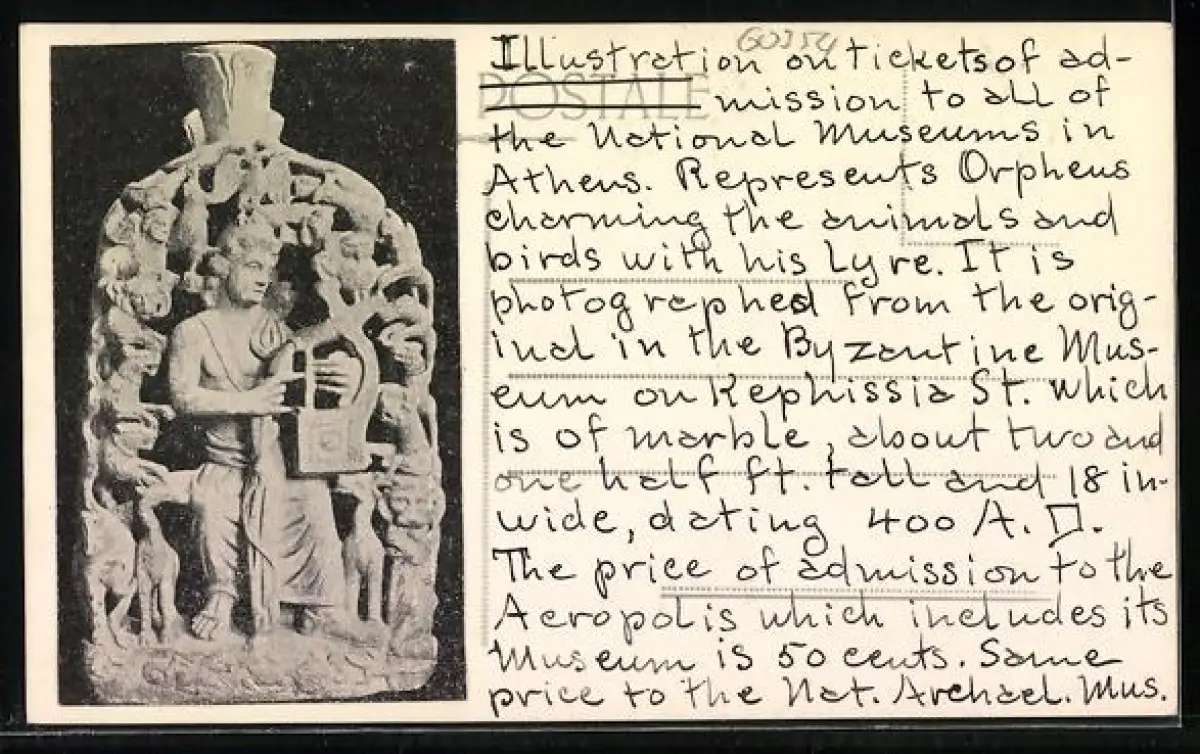 60354
Illustration on tickets of ad-
POSTALE
mission to all of
the National Museums in
Athens. Represents Orpheus
charming the animals and
birds with his Lyre. It is
photographed from the orig-
inal in the Byzantine Mus-
eum on Kephissia St. which
is of marble, about two and
one half ft. tall and 18 in-
wide, dating 400 A. D.
The price of admission to the
Acropolis which includes its
Museum is 50 cents. Same
price to the Nat. Archael. Mus.